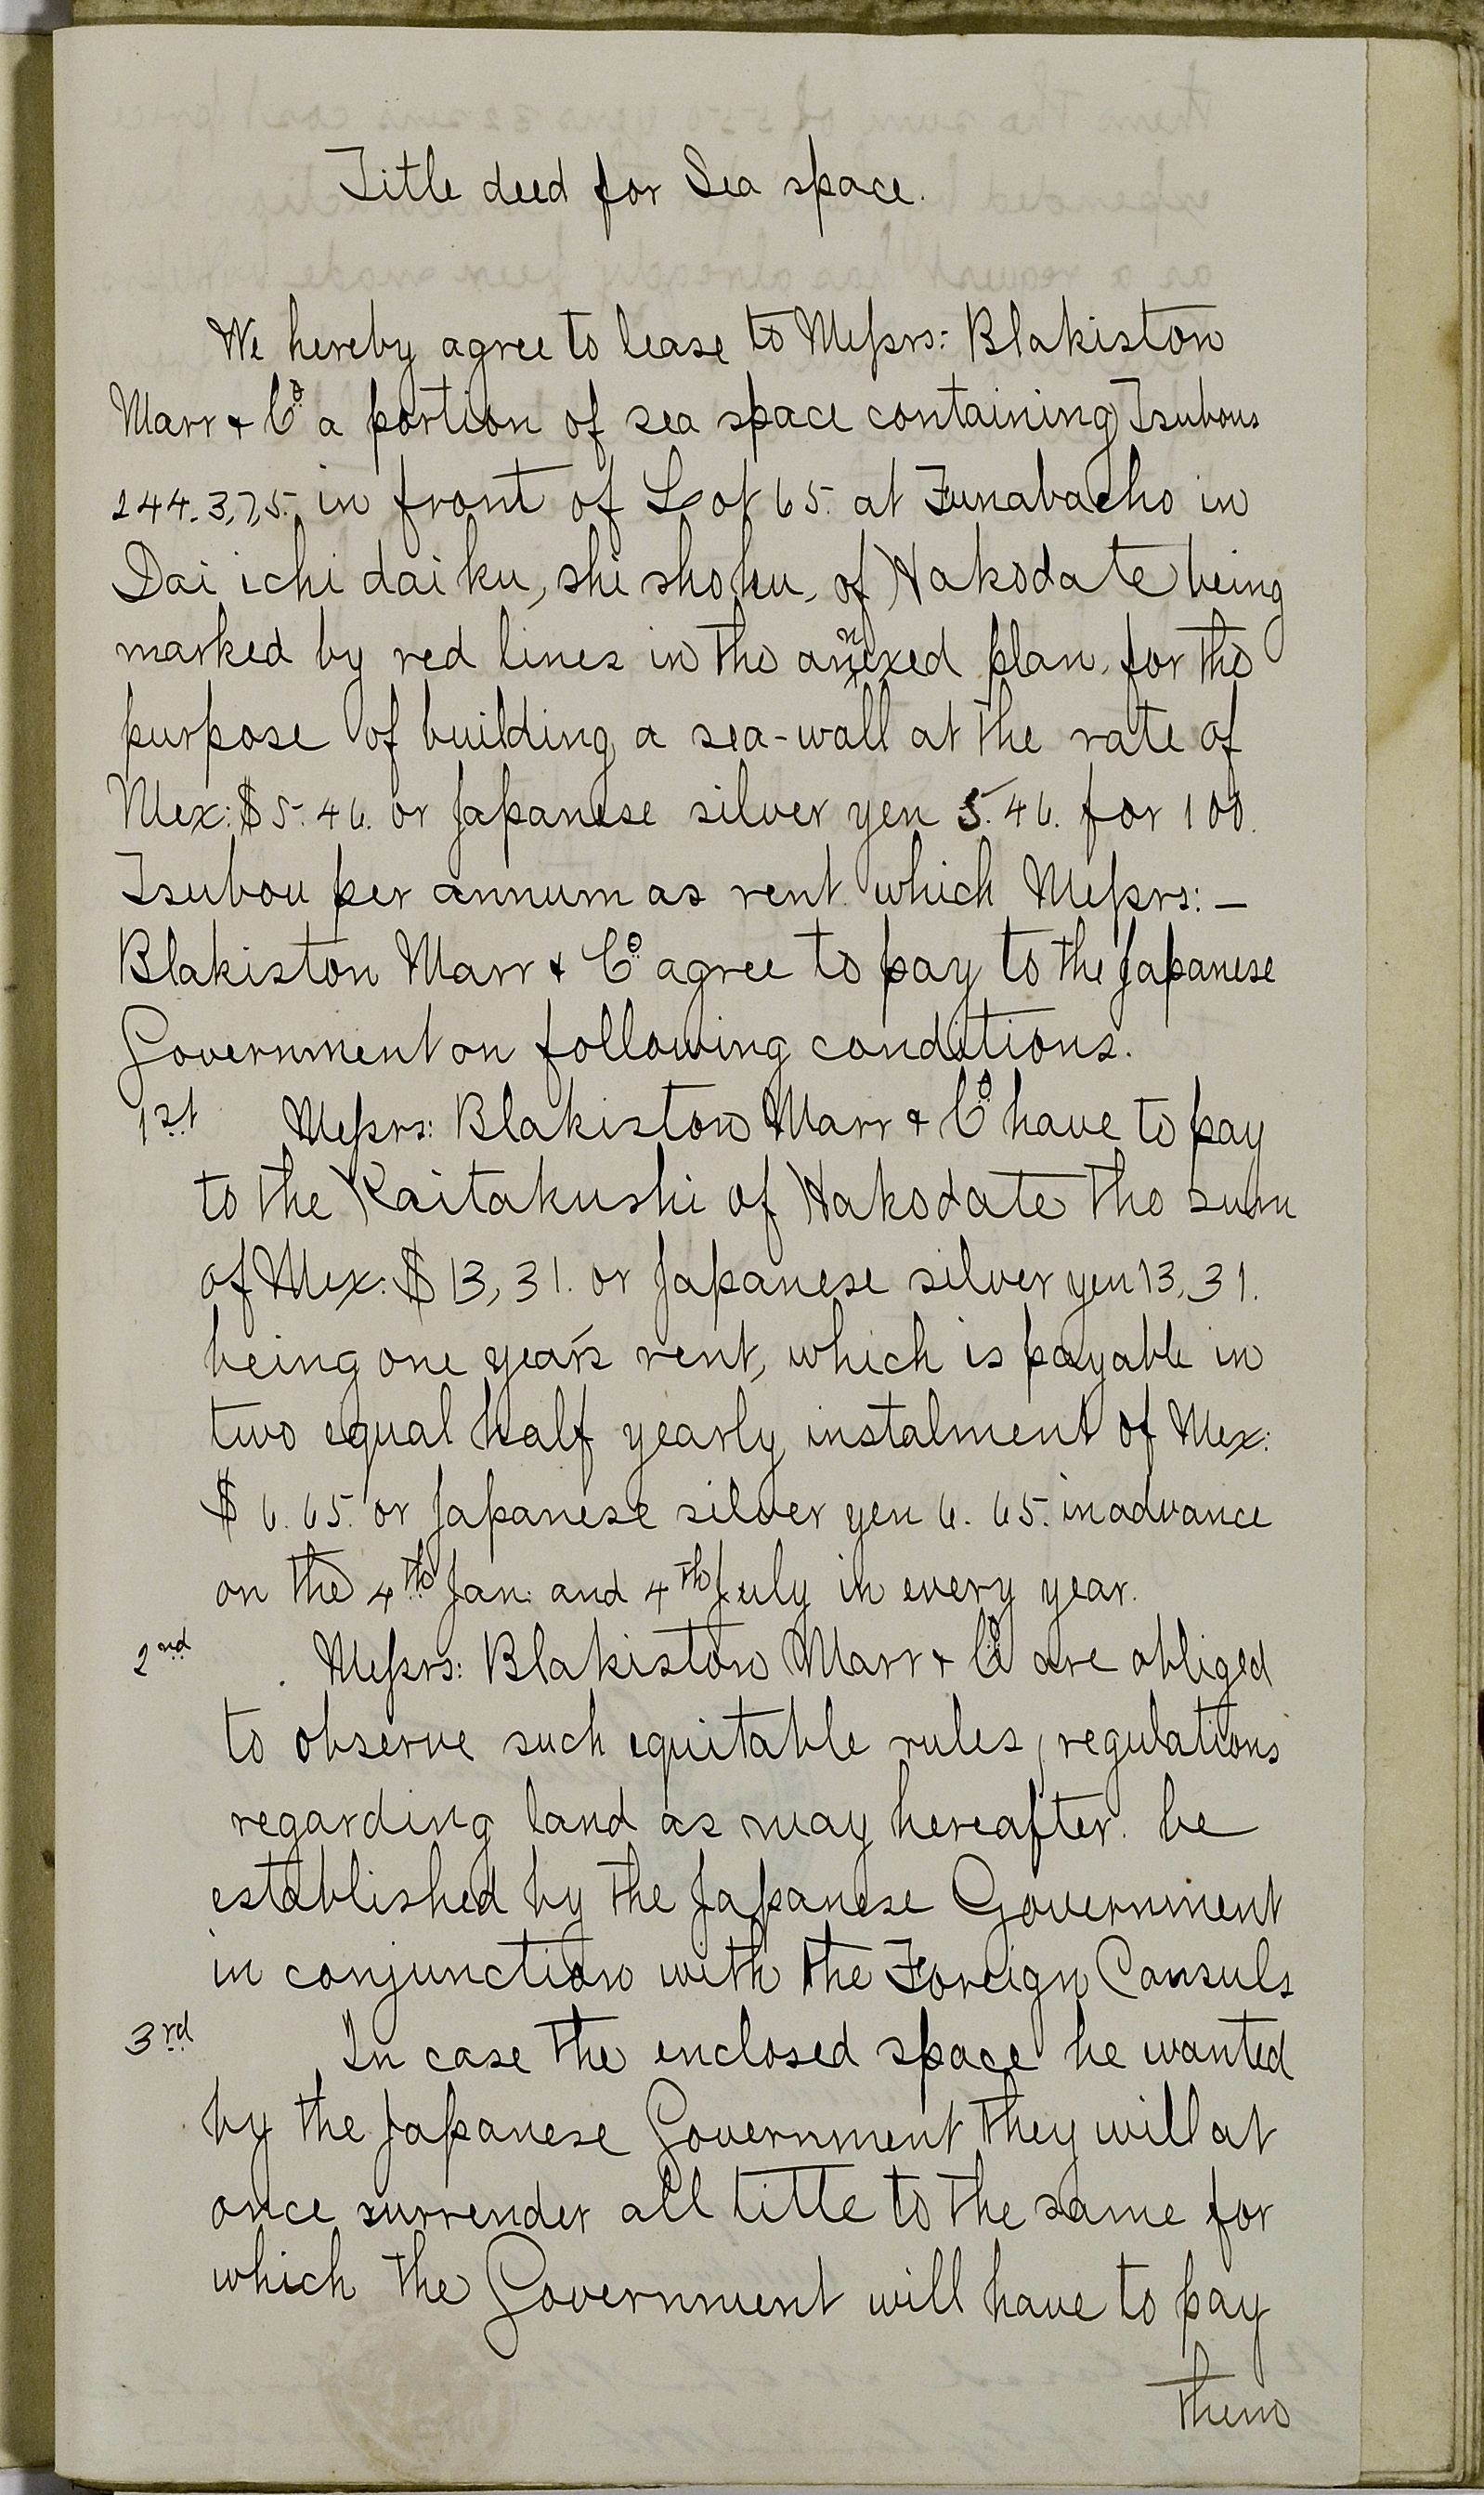 Title deed for Sea space.
We hereby agree to lease to Messrs: Blakiston
Marr & Co a portion of sea space containing Tsubous
244.3,7,5. in front of Lot 65. at Funabacho in
Dai ichi dai ku, shi sho ku, of Hakodate being
marked by red lines in the annexed plan, for the
purpose of building a sea-wall at the rate of
Mex: $5.46. or Japanese silver yen 5.46. for 100.
Tsubou per annum as rent which Messrs: –
Blakiston Marr & Co agree to pay to the Japanese
Government on following conditions.
1st Messrs: Blakiston Marr & Co have to pay
to the Kaitakushi of Hakodate the sum
of Mex: $13,31. or Japanese silver yen 13,31.
being one year's rent, which is payable in
two equal half yearly instalment of Mex:
$6.65. or Japanese silver yen 6.65. in advance
on the 4th Jan: and 4th July in every year.
2nd Messrs: Blakiston Marr & Co are obliged
to observe such equitable rules, regulations
regarding land as may hereafter. be
established by the Japanese Government
in conjunction with the Foreign Consuls
3rd In case the enclosed space be wanted
by the Japanese Government they will at
once surrender all title to the same for
which the Government will have to pay
them